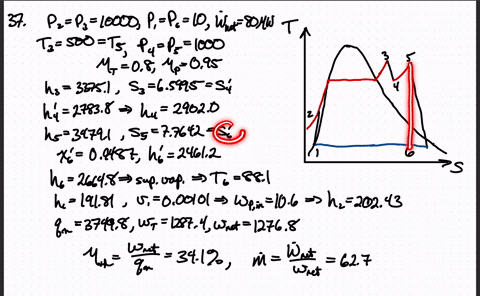 37. P₂=P₃=10000, P₁=P₆=10, Ẇnet=80MW
T₃=500=T₅, P₄=P₅=1000
η_T=0.8, η_P=0.95
h₃=3375.1, S₃=6.5995=S₄'
h₄'=2783.8 ⇒ h₄=2902.0
h₅=3479.1, S₅=7.7642=S₆'
x₆'=0.9487, h₆'=2461.2
h₆=2664.8 ⇒ sup. vap. ⇒ T₆=88.1
h₁=191.81, v₁=0.00101 ⇒ w_p,in=10.6 ⇒ h₂=202.43
q_in=3749.8, w_T=1287.4, w_net=1276.8
η_th = w_net/q_in = 34.1%, ṁ = Ẇnet/w_net = 62.7
T
3
5
4
2
1
6
S